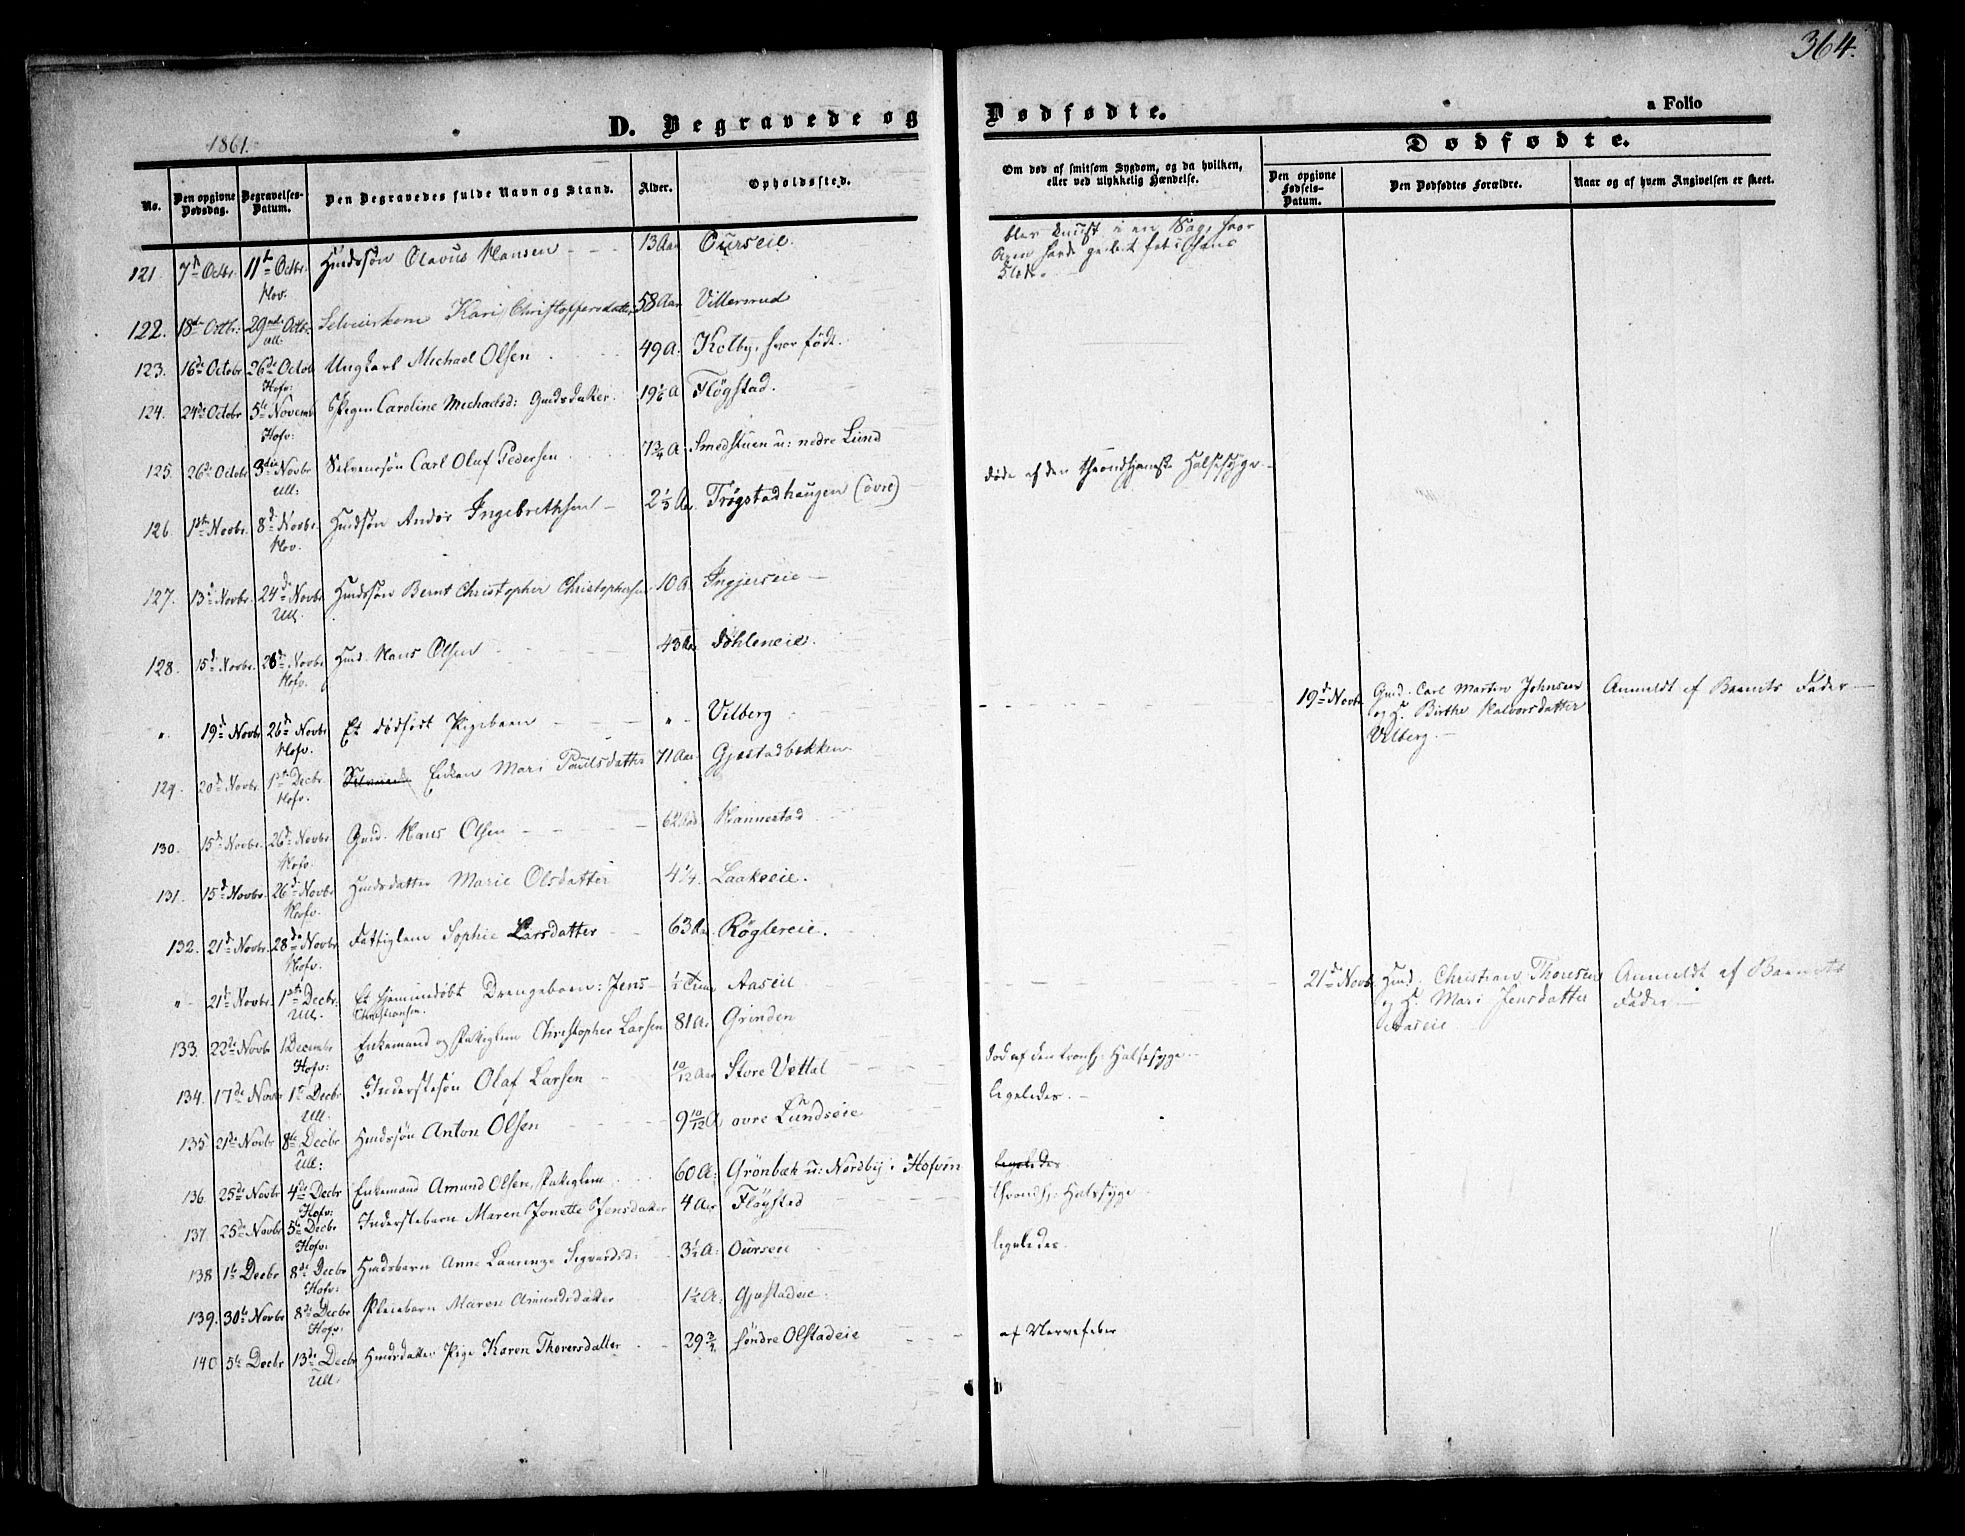 364.
D. Begravede og Dødfødte.
a Folio
1861.
No.
Den opgivne Dødsdag.
Begravelses-Datum.
Den Begravedes fulde Navn og Stand.
Alder.
Opholdssted.
Om død af smitsom Sygdom, og da hvilken, eller ved ulykkelig Hændelse.
Dødfødte.
Den opgivne Fødsels-Datum.
Den Dødfødtes Forældre.
Naar og af hvem Angivelsen er skeet.
121. 7d Octbr. 11te Octbr. Hov. Husdssøn Olavus Hansen 13 Aar Ourseie. blev knust i en Sag, hvor
122. 18de Octbr. 29nd Octbr. Ull. Kari Christoffersdatter 58 Aar Villersrud
123. 16de Octobr 26de Octob Hofv: Ungkarl Michael Olsen 49 A. Kolby, hvor født.
124. 24de Octobr 5te Novemb Hofv: Pigen Caroline Michaelsd: Gmdsdatter. 19½ A Fløgstad.
125. 26de Octobr 3die Novbr Ull: Selveiersøn Carl Oluf Pedersen 7¾ A: Smedstuen u: nedre Lund døde af den throndhjemske Halssyge
126. 1ste Novbr. 8d Novbr. Hov. Husdsøn Andor Ingebrethsen 2⅓ Aa. Trøgstadhaugen (øvre)
127. 13d Novbr. 24d Novbr Ull. Husdssøn Bernt Christopher Christophersen 10 A. Ingjerseie
128. 15d Novbr. 26d Novbr Hofv. Husd. Hans Olsen 43 Aa. Døhleneie.
" 19d Novbr 26d Novbr Hofv. Et dødfødt Pigebarn " Vilberg 19d Novbr Gmd. Carl Martin Johnsen Anmeldt af Barnets Fader
og H. Birthe Halvorsdatter
Vilberg.
129. 20d Novbr. 1ste Decbr Hofv. Enken Mari Paulsdatter 71 Aar Gjestadbakken
130. 15d Novbr. 26d Novbr Hofv. Gmd. Hans Olsen 62 Aar Hannestad
131. 15d Novbr. 26d Novbr Hofv. Husdsdatter Marie Olsdatter 4¼. Laakeeie.
132. 21d Novbr. 28d Novbr Hofv. Fattiglem Sophie Larsdatter 63 Aar. Røglereie.
" 21d Novbr. 1ste Decbr. Ull. Et hjemmedøbt Drengebarn: Jens ½ Time Aaseie 21d Novbr Husd. Christian Thoresen Anmeldt af Barnets
Christiansen. og H. Mari Jensdatter Fader
Aaseie
133. 22de Novbr 1 Decembr Hofv: Enkemand og Fattiglem Christopher Larsen 81 Aa Grinden
134. 17de Novbr 1ste Decbr Ull. Inderstesøn Olaf Larsen 10/12 Aar Store Vettal død af den tronhj: Halssyge
135 21de Novbr 8de Decbr Ull: Husdssøn Anton Olsen 9 10/12 A øvre Lundseie ligeledes.
136. 25de Novbr 4de Decbr Hofv: Enkemand Amund Olsen, Fattiglem 60 A: Grönbæk u: Nordby i Hofvin ligeledes
137. 25de Novbr 5te Decbr Hofv: Inderstebarn Maren Jonette Jensdatter 4 Aar Fløgstad throndhj: Halssyge
138 1ste Decbr 8de Decbr Hofv: Husdsbarn Anne Laurenze Sigvardsd: 3½ A: Ourseie ligeledes.
139. 30te Novbr 8de Decbr Hofv. Pleiebarn Maren Amundsdatter 1½ A: Gjestadeie.
140 5te Decbr 13de Decbr Ull. Husdsdatter Pige Karen Thoresdatter 29 søndre Olstadeie af Nervefeber